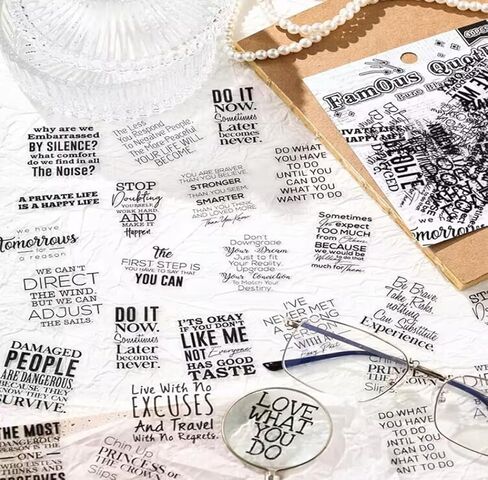 why are we
Embarrassed
BY SILENCE?
what comfort
do we find in all
The Noise?
The Less
You Respond
To Negative People,
The More Peaceful
YOUR LIFE WILL
BECOME.
DO IT
NOW.
Sometimes
Later
becomes
never.
FamOus Quot
A PRIVATE LIFE
IS A HAPPY LIFE
STOP
Doubting
YOURSELF
WORK HARD
AND
MAKE IT
Happen
YOU ARE BRAVER
THAN YOU BELIEVE
STRONGER
THAN YOU SEEM
SMARTER
THAN YOU THINK
AND LOVED MORE
Than You Know
DO WHAT
YOU HAVE
TO DO
UNTIL YOU
CAN DO
WHAT YOU
WANT TO DO
PRIVATE LIFE
HAPPY LIFE
we have
Tomorrows
for
a reason
the
FIRST STEP IS
YOU HAVE TO SAY THAT
YOU CAN
Don't
Downgrade
Your Dream
Just to fit
Your Reality,
Upgrade
Your Conviction
To Match Your
Destiny.
Sometimes
You expect
TOO MUCH
from Others
BECAUSE
we would be
Willing
to do that
much for Them
WE CAN'T
DIRECT
THE WIND,
BUT WE CAN
ADJUST
THE SAILS.
DO IT
NOW.
Sometimes
Later
becomes
never.
IT'S OKAY
IF YOU DON'T
LIKE ME
NOT Everyone
HAS GOOD
TASTE
I'VE
NEVER MET
A STRONG
PERSON
WITH AN
Easy Past
Be Brave
Take Risks
nothing
Can Substitute
Experience.
DAMAGED
PEOPLE
ARE DANGEROUS
BECAUSE THEY
KNOW THEY CAN
SURVIVE.
Live With No
EXCUSES
And Travel
With No Regrets.
LOVE
WHAT
YOU
DO
Chin Up
PRINCESS OR
THE CROWN
Slips
THE MOST
DANGEROUS
PERSON IS THE
ONE
WHO LISTENS
THINKS AND
OBSERVES
Chin Up
PRINCESS OR
THE CROWN
Slips
DO WHAT
YOU HAVE
TO DO
UNTIL YOU
CAN DO
WHAT YOU
WANT TO DO